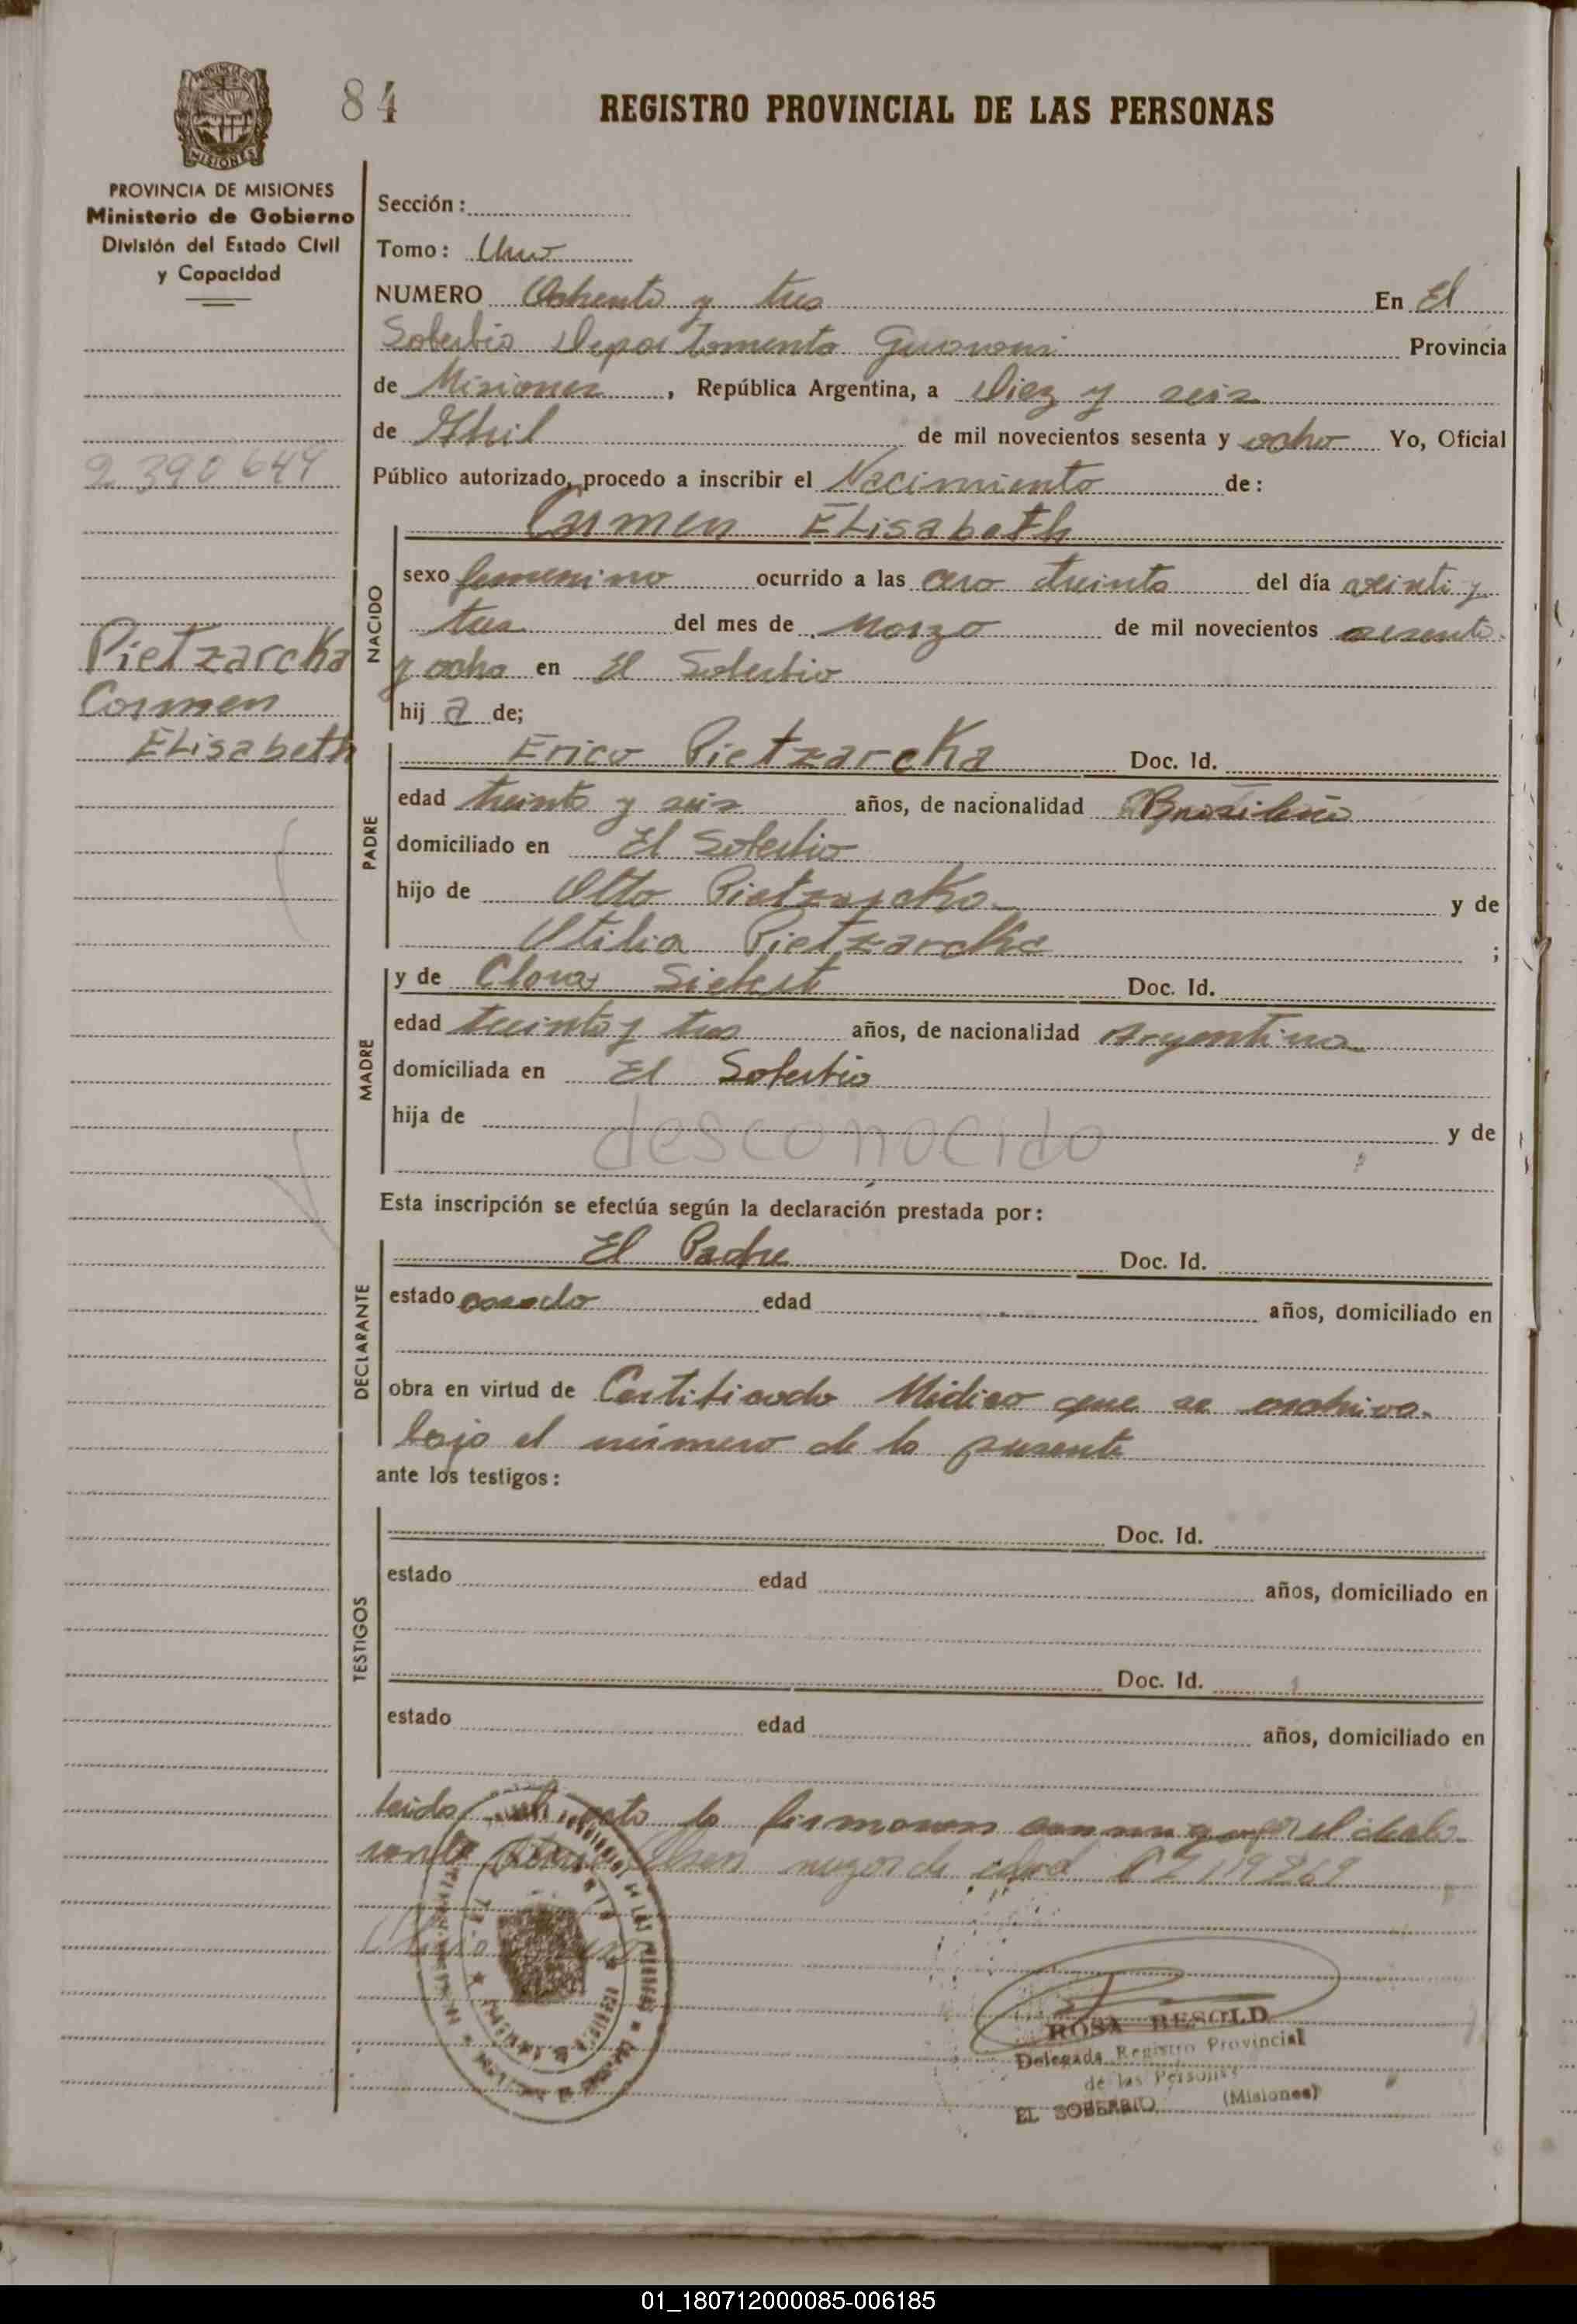 84
REGISTRO PROVINCIAL DE LAS PERSONAS
PROVINCIA DE
MISIONES
PROVINCIA DE MISIONES
Ministerio de Gobierno
División del Estado Civil
y Capacidad
Sección:
Tomo: Uno
NUMERO Ochenta y tres En El
Soberbio Departamento Guarani Provincia
de Misiones, República Argentina, a diez y seis
de Abril de mil novecientos sesenta y ocho Yo, Oficial
Público autorizado, procedo a inscribir el Nacimiento de:
Carmen Elisabeth
2 390 644
Pietzarcka
Carmen
Elisabeth
NACIDO
sexo femenino ocurrido a las cero treinta del día veinti y
tres del mes de Marzo de mil novecientos sesenta
y ocho en El Soberbio
hij a de;
PADRE
Erico Pietzarcka Doc. Id.
edad treinta y seis años, de nacionalidad Brasileña
domiciliado en El Soberbio
hijo de Otto Pietzarcka y de
Otilia Pietzarcka ;
MADRE
y de Clara Siebert Doc. Id.
edad treinta y tres años, de nacionalidad Argentina
domiciliada en El Soberbio
hija de desconocido y de
Esta inscripción se efectúa según la declaración prestada por:
DECLARANTE
El Padre Doc. Id.
estado casado edad años, domiciliado en
obra en virtud de Certificado Médico que se archiva
bajo el número de la presente
ante los testigos:
TESTIGOS
Doc. Id.
estado edad años, domiciliado en
Doc. Id.
estado edad años, domiciliado en
leida el acta la firmaron conmigo por el decla
rante mayor de edad
ROSA BESOLD
Delegada Registro Provincial
de las Personas
EL SOBERBIO (Misiones)
01_180712000085-006185